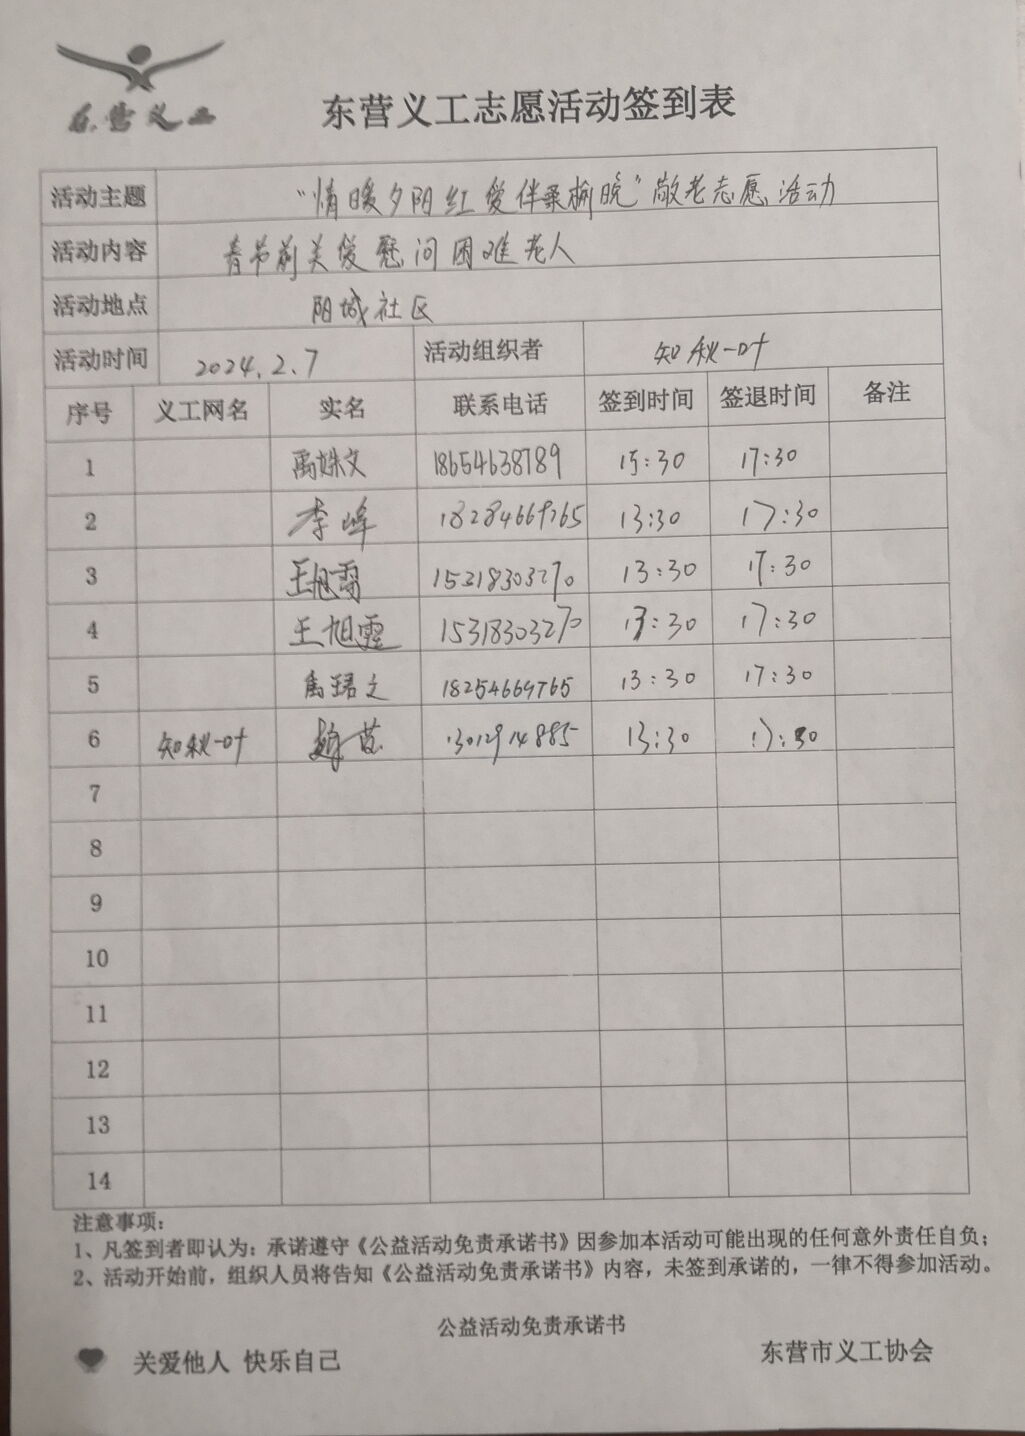 东营义工
东营义工志愿活动签到表
活动主题 “情暖夕阳红 爱伴桑榆晚”敬老志愿活动
活动内容 春节前关爱慰问困难老人
活动地点 阳城社区
活动时间 2024.2.7 活动组织者 知秋一叶
序号 义工网名 实名 联系电话 签到时间 签退时间 备注
1 禹姝文 18654638789 15:30 17:30
2 李峰 13:30 17:30
3 15318303270 13:30 17:30
4 王旭霞 15318303270 13:30 17:30
5 禹珺文 18254669765 13:30 17:30
6 知秋一叶 13012914885 13:30 17:30
7
8
9
10
11
12
13
14
注意事项：
1、凡签到者即认为：承诺遵守《公益活动免责承诺书》因参加本活动可能出现的任何意外责任自负；
2、活动开始前，组织人员将告知《公益活动免责承诺书》内容，未签到承诺的，一律不得参加活动。
公益活动免责承诺书
关爱他人 快乐自己 东营市义工协会